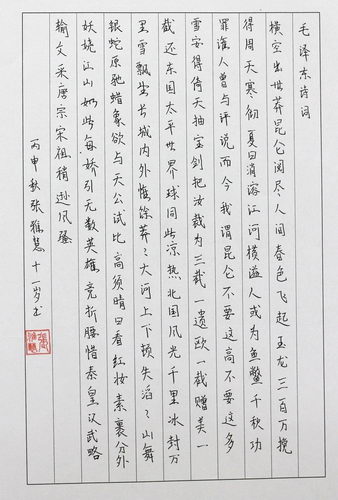 毛泽东诗词
横空出世莽昆仑阅尽人间春色飞起玉龙三百万搅
得周天寒彻夏日消溶江河横溢人或为鱼鳖千秋功
罪谁人曾与评说而今我谓昆仑不要这高不要这多
雪安得倚天抽宝剑把汝裁为三截一遗欧一截赠美一
截还东国太平世界球同此凉热北国风光千里冰封万
里雪飘望长城内外惟馀莽〻大河上下顿失滔〻山舞
银蛇原驰蜡象欲与天公试比高须晴日看红妆素裹分外
妖娆江山如此每娇引无数英雄竞折腰惜秦皇汉武略
输文采唐宗宋祖稍逊风骚
丙申秋张雅慧十一岁书